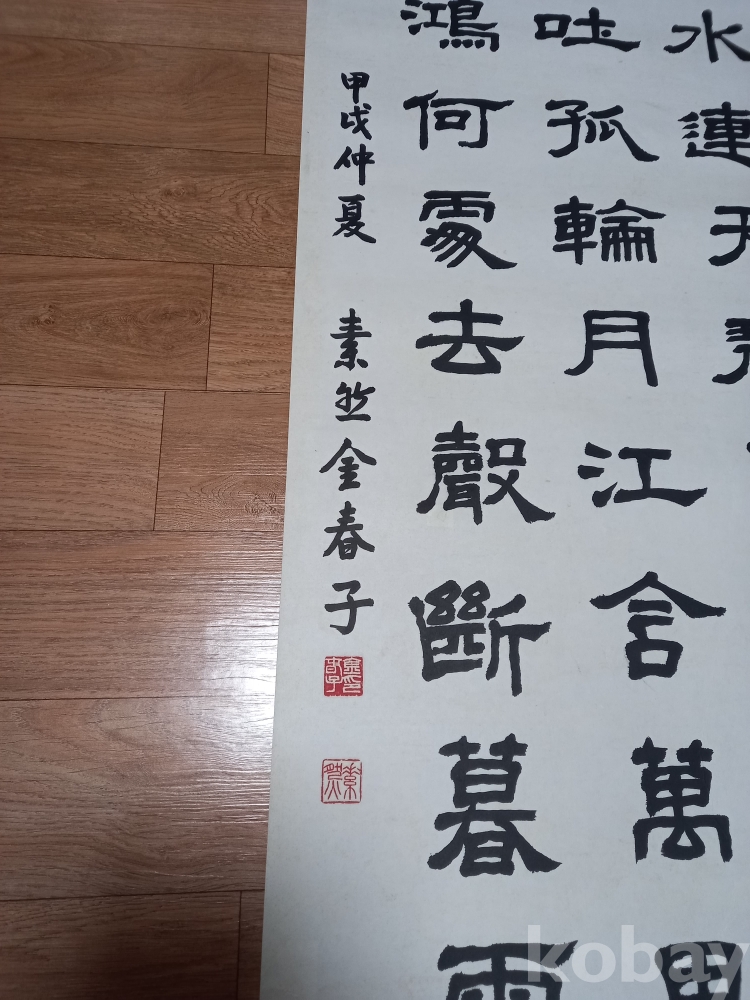 水連天
吐孤輪月江含萬里
鴻何處去聲斷暮
甲戌仲夏 素然金春子
素然
kobay